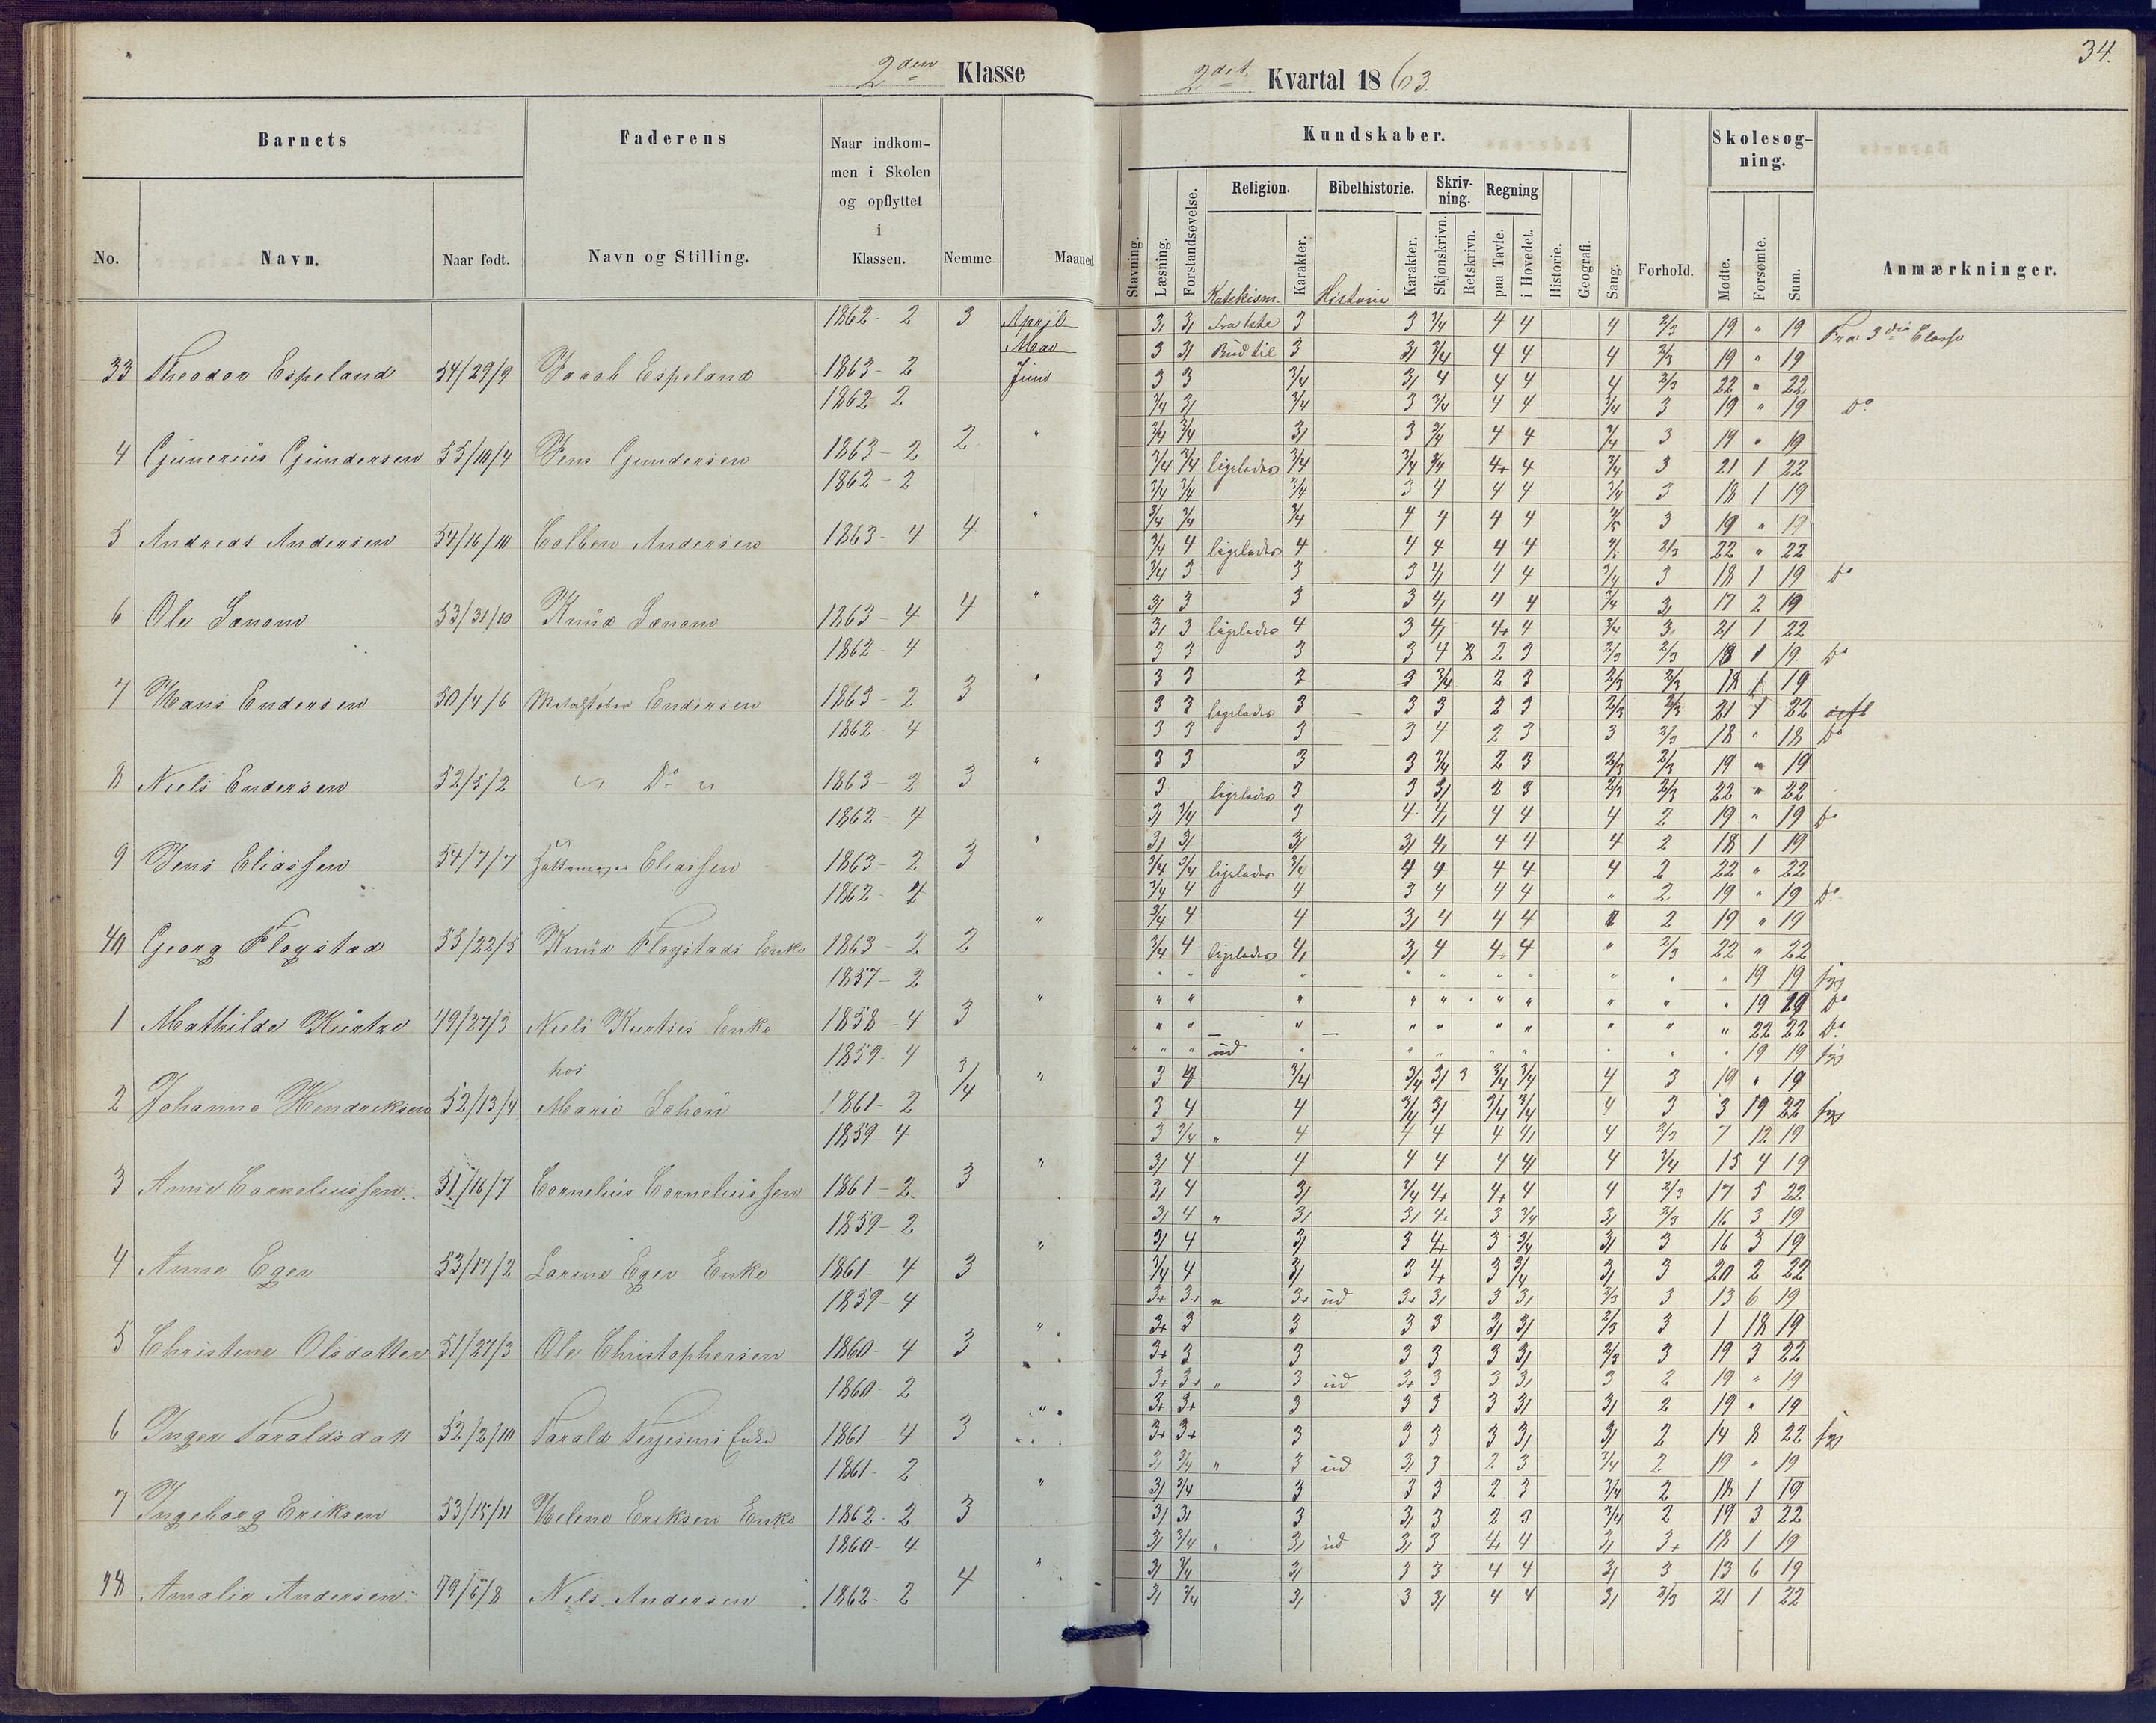 34.
2den Klasse
2det Kvartal 1863.
Barnets
Faderens
Naar indkom-
men i Skolen
og opflyttet
i
Klassen.
No.
Navn.
Naar født.
Navn og Stilling.
Nemme
Maaned
Kundskaber.
Skolesøg-
ning.
Religion. Bibelhistorie. Skriv-
ning. Regning
Stavning. Læsning. Forstandsøvelse. Katekism. Karakter. Historie Karakter. Skjønskrivn. Retskrivn. paa Tavle. i Hovedet. Historie. Geografi. Sang. Forhold. Mødte. Forsømte. Sum. Anmærkninger.
1862 - 2 3 April
Mai
33 Theodor Espeland 54/29/9 Jacob Espeland 1863 - 2 Juni
1862 2
4 Gunerius Gundersen 55/10/4 Jens Gundersen 1863 - 2 2 "
1862 - 2
5 Andreas Andersen 54/16/10 Colben Andersen 1863 - 4 4 "
6 Ole 53/31/10 Knud 1863 - 4 4 "
1862 - 4
7 Hans Endersen 50/4/6 Endersen 1863 - 2 3 "
1862 - 4
8 Niels Endersen 52/5/2 " Do " 1863 - 2 3 "
1862 - 4
9 Jens Eliassen 54/7/7 Eliassen 1863 - 2 3 "
1862 -
40 Georg Fløystad 53/22/5 Knud Fløystads Enke 1863 - 2 2 "
1857 - 2
1 Mathilde Kürtze 49/27/3 Niels Kurtses Enke 1858 - 4 3 "
hos 1859 - 4
2 Johanne Hendriksen 52/13/4 Marie 1861 - 2 3/4 "
1859 - 4
3 Anne Corneliussen 51/16/7 Cornelius Corneliussen 1861 - 2 3 "
1859 - 2
4 Anne Eger 53/17/2 Eger Enke 1861 - 4 3 "
1859 - 4
5 Christine Olsdatter 51/27/3 Ole Christophersen 1860 - 4 3 "
1860 - 2
6 Inger Taraldsdatt 52/2/10 Tarald Terjesens Enke 1861 - 4 3 "
1861 - 2
7 Ingeborg Eriksen 53/15/11 Helene Eriksen Enke 1862 - 2 3 "
1860 - 4
48 Amalie Andersen 49/6/8 Nels Andersen 1862 - 2 4 "
3, 3, 3 3 3/4 4 4 4 2/3 19 " 19 Fra 3die Classe
3 3, Bud til 3 3, 3/4 4 4 4 2/3 19 " 19
3 3 3/4 3, 4 4 4 4 2/3 22 " 22
3/4 3, 3/4 3 3/4 4 4 3/4 3 19 " 19 Do
3/4 3/4 3, 3 3/4 4 4 3/4 3 19 " 19
3/4 3/4 ligeledes 3/4 3/4 3/4 4+ 4 3/4 3 21 1 22
3/4 3/4 3/4 3 4 4 4 3/4 3 18 1 19
3/4 3/4 3/4 4 4 4 4 3 19 " 19
3/4 4 ligeledes 4 4 4 4 4 2/3 22 " 22
3/4 3 3 3 4, 4 4 3/4 3 18 1 19 Do
3, 3 3 3 4, 4 4 3/4 3, 17 2 19
3, 3 ligeledes 4 3 4, 4+ 4 3/4 3, 21 1 22
3 3 3 3 4 2 3 2/3 2/3 18 1 19 Do
3 3 3 3 3/4 2 3 2/3 2/3 18 1 19
3 3 ligeledes 3 3 3 2 3 2/3 2/3 21 1 22
3 3 3 3 4 2 3 3 2/3 18 " 18 Do
3 3 3 3 3/4 2 3 2/3 2/3 19 " 19
3 ligeledes 3 3 3, 2 3 2/3 2/3 22 " 22
3, 3/4 3 4 4, 4 4 4 2 19 " 19 Do
3, 3, 3, 3, 4, 4 4 4 2 18 1 19
3/4 3/4 ligeledes 3/4 4 4 4 4 4 2 22 " 22
3/4 4 4 3 4 4 4 " 2 19 " 19 Do
3/4 4 4 3, 4 4 4 2 19 " 19
3/4 4 ligeledes 4, 3, 4 4+ 4 " 2/3 22 " 22
" " " " " " " " " " 19 19 syg
" " " " " " " " " " 19 19 Do
" " " " " " " " " " 22 22 Do
" " " ud " " " " " " " " 19 19 syg
3 4 3/4 3/4 3, 3 3/4 3/4 4 3 19 " 19
3 4 4 3/4 3, 3/4 3/4 4 3 3 19 22 syg
3 3/4 " 4 4 4 4 4, 4 2/3 7 12 19
3, 4 4 4 4 4 4, 4 3/4 15 4 19
3, 4 3, 3/4 4+ 4+ 4 4 2/3 17 5 22
3, 4 " 3, 3, 4+ 3 3/4 3, 2/3 16 3 19
3, 4 3, 3 4+ 3 3/4 3, 3 16 3 19
3/4 4 3, 3 4+ 3 3/4 3, 3 20 2 22
3+ 3+ " 3+ ud 3+ 3, 3 3, 2/3 3 13 6 19
3+ 3 3 3 3 3, 3, 2/3 3 1 18 19
3+ 3 3 3 3 3 3, 2/3 3 19 3 22
3+ 3+ " 3 ud 3+ 3 3 3, 3 2 19 " 19
3+ 3+ 3 3 3 3 3, 3, 2 19 " 19
3+ 3+ 3 3 3 3 3, 3, 2 14 8 22 syg
3, 3/4 " 3 ud 3, 3 2 3 3/4 2 19 " 19
3, 3/4 3 3 3 2 3 3/4 2 18 1 19
3, 3, 3 3, 3 2 3 3/4 2 19 3 22
3, 3/4 " 3, ud 3, 3 4+ 4 3, 3+ 18 1 19
3, 3/4 3, 3 3 4 4 3, 3 13 6 19
3, 3/4 3, 3 3, 4 4 3, 2/3 21 1 22